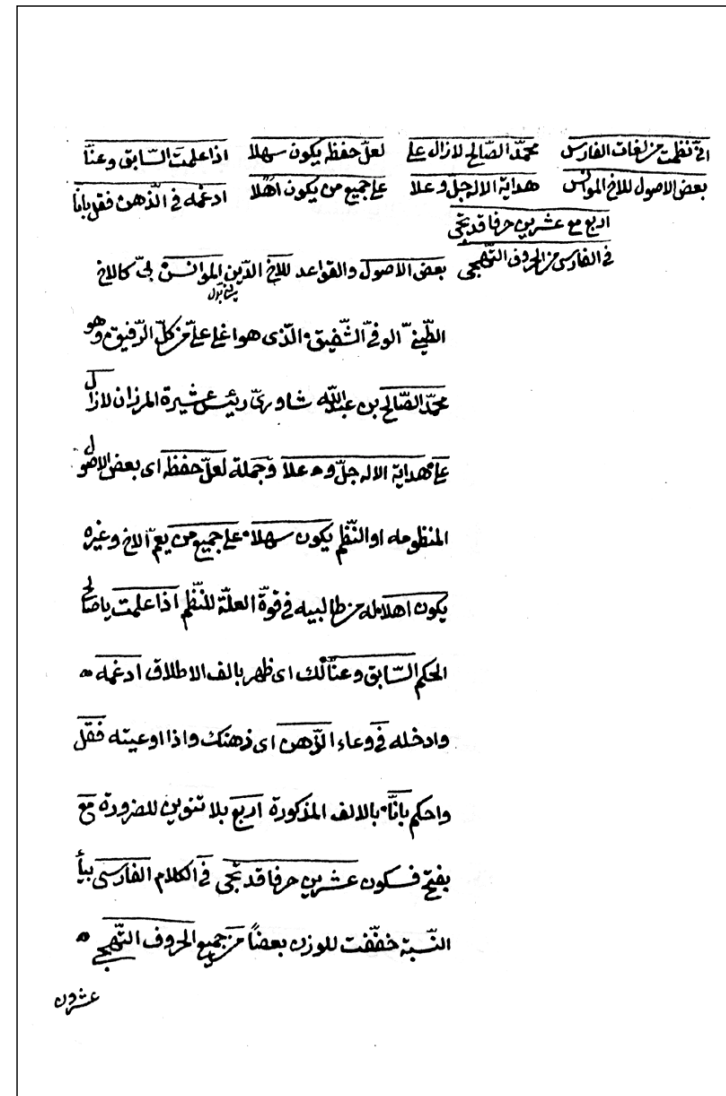 انّى نظمت من لغات الفارس محمّد الصّالح لازال على لعلّ حفظه يكون سهلا اذا علمت السّابق وعنّا
بعض الاصول للاخ الموانس هداية الاله جلّ وعلا على جميع من يكون اهلا ادغمه فى الذّهن فقل بانا
اربع مع عشرين حرفا قد تجى
فى الفارسى من الحروف التّهجى
بعض الاصول والقواعد للاخ الدّين الموانس بى كالاخ
الطّينى الوفىّ الشّفيق الّذى هو اغلى علىّ من كلّ الرّفيق وهو
محمّد الصّالح بن عبدالله شاورىّ رئيس عشيرة المرزان لازال
على هداية الاله جلّ وعلا وجملة لعلّ حفظه اى بعض الاصول
المنظومه او النّظم يكون سهلا على جميع من يعم الاخ وغيره
يكون اهلا له من طالبيه فى قوّة العلّة للنّظم اذا علمت يا صالح
الحكم السّابق وعنّا لك اى ظهر بالف الاطلاق ادغمه
وادخله فى وعاء الذّهن اى ذهنك واذا اوعيته فقل
واحكم بانّا بالالف المذكورة اربع بلا تنوين للضرورة مع
بفتح فسكون عشرين حرفا قد تجى فى الكلام الفارسى بيأ
النّسبة خفّفت للوزن بعضاً من جميع الحروف التّهجى
عشرون